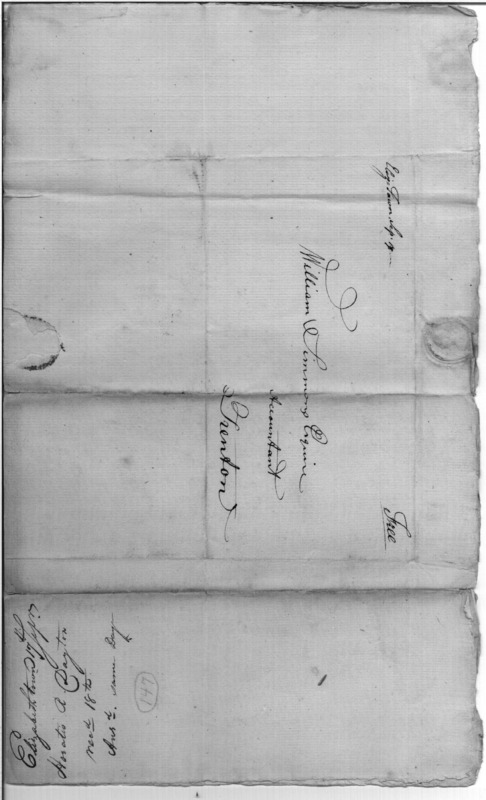 Free
William Simmons Esquire
Accountant
Trenton
Elizabethtown
Horatio R Dayton
recd 18th
Ansd. same day
147